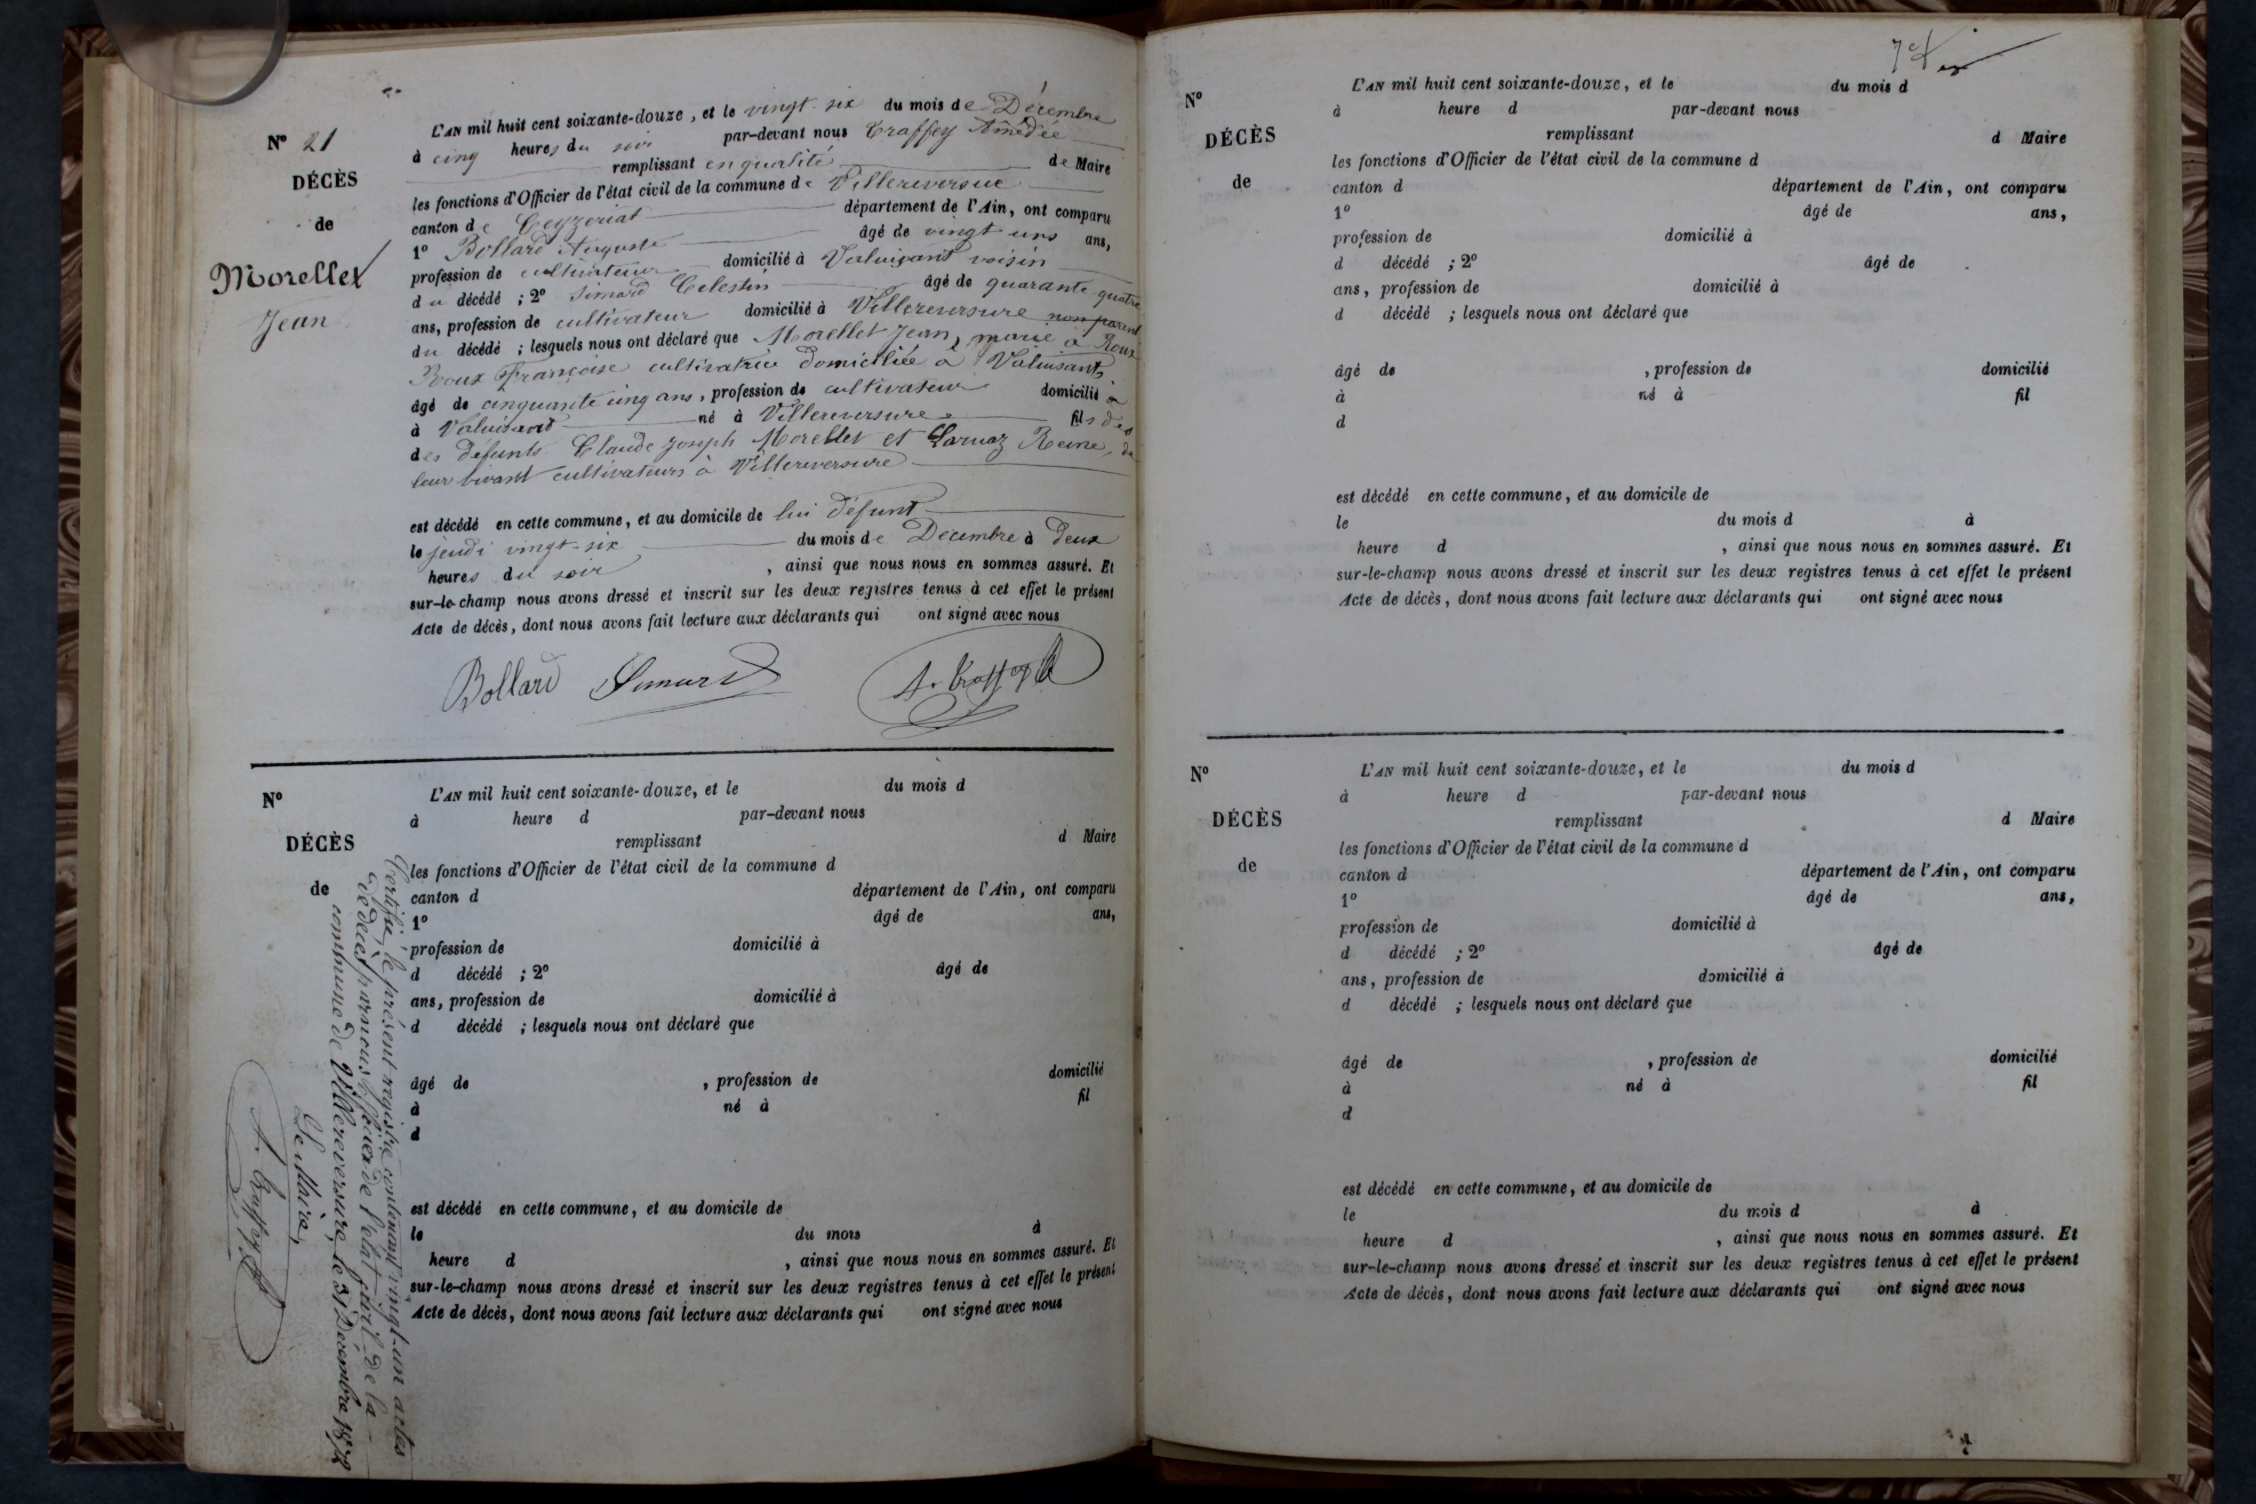 N° 21
DÉCÈS
de
Morellet
Jean
L'AN mil huit cent soixante-douze, et le vingt-six du mois de Décembre
à cinq heures du soir par-devant nous Craffey Amédée
remplissant en qualité de Maire
les fonctions d'Officier de l'état civil de la commune de Villereversure
canton de Ceyzeriat département de l'Ain, ont comparu
1° Bollard Auguste âgé de vingt uns ans,
profession de cultivateur domicilié à Valuisant voisin
du décédé ; 2° Simard Celestin âgé de quarante quatre
ans, profession de cultivateur domicilié à Villereversure non parent
du décédé ; lesquels nous ont déclaré que Morellet Jean, marié à Roux
Roux Françoise cultivatrice domiciliée à Valuisant,
âgé de cinquante cinq ans, profession de cultivateur domicilié à
à Valuisant né à Villereversure fils des
des défunts Claude Joseph Morellet et Larnaz Reine, de
leur vivant cultivateurs à Villereversure
est décédé en cette commune, et au domicile de lui défunt
le jeudi vingt-six du mois de Décembre à deux
heures du soir , ainsi que nous nous en sommes assuré. Et
sur-le-champ nous avons dressé et inscrit sur les deux registres tenus à cet effet le présent
Acte de décès, dont nous avons fait lecture aux déclarants qui ont signé avec nous
Bollard Simard A. Craffey
N°
DÉCÈS
de
L'AN mil huit cent soixante-douze, et le du mois d
à heure d par-devant nous
remplissant d Maire
les fonctions d'Officier de l'état civil de la commune d
canton d département de l'Ain, ont comparu
1° âgé de ans,
profession de domicilié à
d décédé ; 2° âgé de
ans, profession de domicilié à
d décédé ; lesquels nous ont déclaré que
âgé de , profession de domicilié
à né à fil
d
est décédé en cette commune, et au domicile de
le du mois à
heure d , ainsi que nous nous en sommes assuré. Et
sur-le-champ nous avons dressé et inscrit sur les deux registres tenus à cet effet le présent
Acte de décès, dont nous avons fait lecture aux déclarants qui ont signé avec nous
Certifié, le présent registre contenant vingt-un actes
de décès, par nous officier de l'état civil de la
commune de Villereversure, le 31 Décembre 1872
Le Maire,
A. Craffey
N°
DÉCÈS
de
L'AN mil huit cent soixante-douze, et le du mois d
à heure d par-devant nous
remplissant d Maire
les fonctions d'Officier de l'état civil de la commune d
canton d département de l'Ain, ont comparu
1° âgé de ans,
profession de domicilié à
d décédé ; 2° âgé de
ans, profession de domicilié à
d décédé ; lesquels nous ont déclaré que
âgé de , profession de domicilié
à né à fil
d
est décédé en cette commune, et au domicile de
le du mois d à
heure d , ainsi que nous nous en sommes assuré. Et
sur-le-champ nous avons dressé et inscrit sur les deux registres tenus à cet effet le présent
Acte de décès, dont nous avons fait lecture aux déclarants qui ont signé avec nous
N°
DÉCÈS
de
L'AN mil huit cent soixante-douze, et le du mois d
à heure d par-devant nous
remplissant d Maire
les fonctions d'Officier de l'état civil de la commune d
canton d département de l'Ain, ont comparu
1° âgé de ans,
profession de domicilié à
d décédé ; 2° âgé de
ans, profession de domicilié à
d décédé ; lesquels nous ont déclaré que
âgé de , profession de domicilié
à né à fil
d
est décédé en cette commune, et au domicile de
le du mois d à
heure d , ainsi que nous nous en sommes assuré. Et
sur-le-champ nous avons dressé et inscrit sur les deux registres tenus à cet effet le présent
Acte de décès, dont nous avons fait lecture aux déclarants qui ont signé avec nous